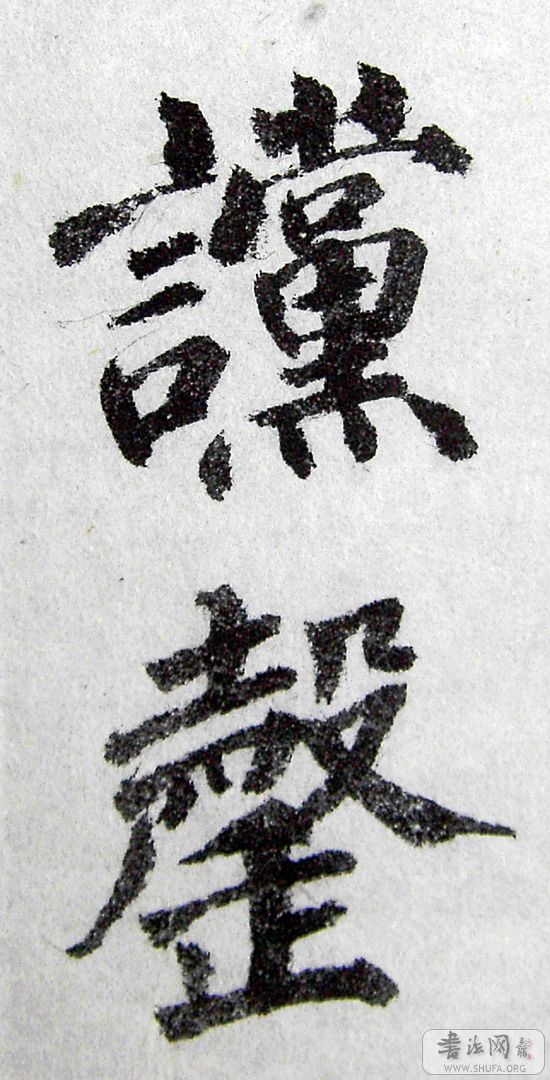 讜
罄
书法网
WWW.SHUFA.ORG